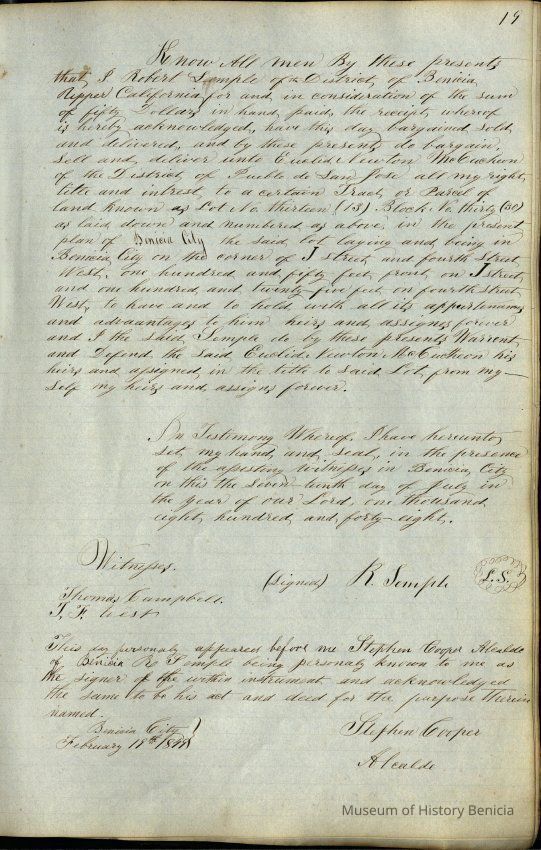 19
Know All men By these presents
that I Robert Semple of the District of Benicia
Upper California for and in consideration of the sum
of fifty Dollars in hand paid, the receipt whereof
is hereby acknowledged, have this day bargained sold
and delivered, and by these presents do bargain,
sell and deliver unto Euclid Newton McCutheon
of the District of Pueblo de San Jose all my right,
title and intrest, to a certain Tract, or Parcel of
land known as Lot No. thirteen (13) Block No. thirty (30)
as laid down and numbered as above, in the present
plan of Benicia City the said lot laying and being in
Benicia City on the corner of J street and fourth street
West, one hundred and fifty feet front on J street,
and one hundred and twenty five feet on fourth street
West, to have and to hold, with all its appurtenances
and advantages to him heirs and assigns forever
and I the said Semple do by these presents Warrent
and Defend the said Euclid Newton McCutheon his
heirs and assigned, in the title to said Lot, from my-
self my heirs and assigns forever.
In Testimony Whereof, I have hereunto
set, my hand, and seal, in the presence
of the assisting witnesses in Benicia City
on this the seven-teenth day of July in
the year of our Lord, one thousand
eight, hundred and forty-eight.
Witnesses.
(signed) R. Semple L.S.
Thomas Campbell.
T. F. West
This day personaly appeared before me Stephen Cooper Alcalde
of Benicia Ro Semple being personaly known to me as
the signer of the within instrument and acknowledged
the same to be his act and deed for the purpose therein
named.
Benicia City
February 19th
Stephen Cooper
Alcalde
Museum of History Benicia